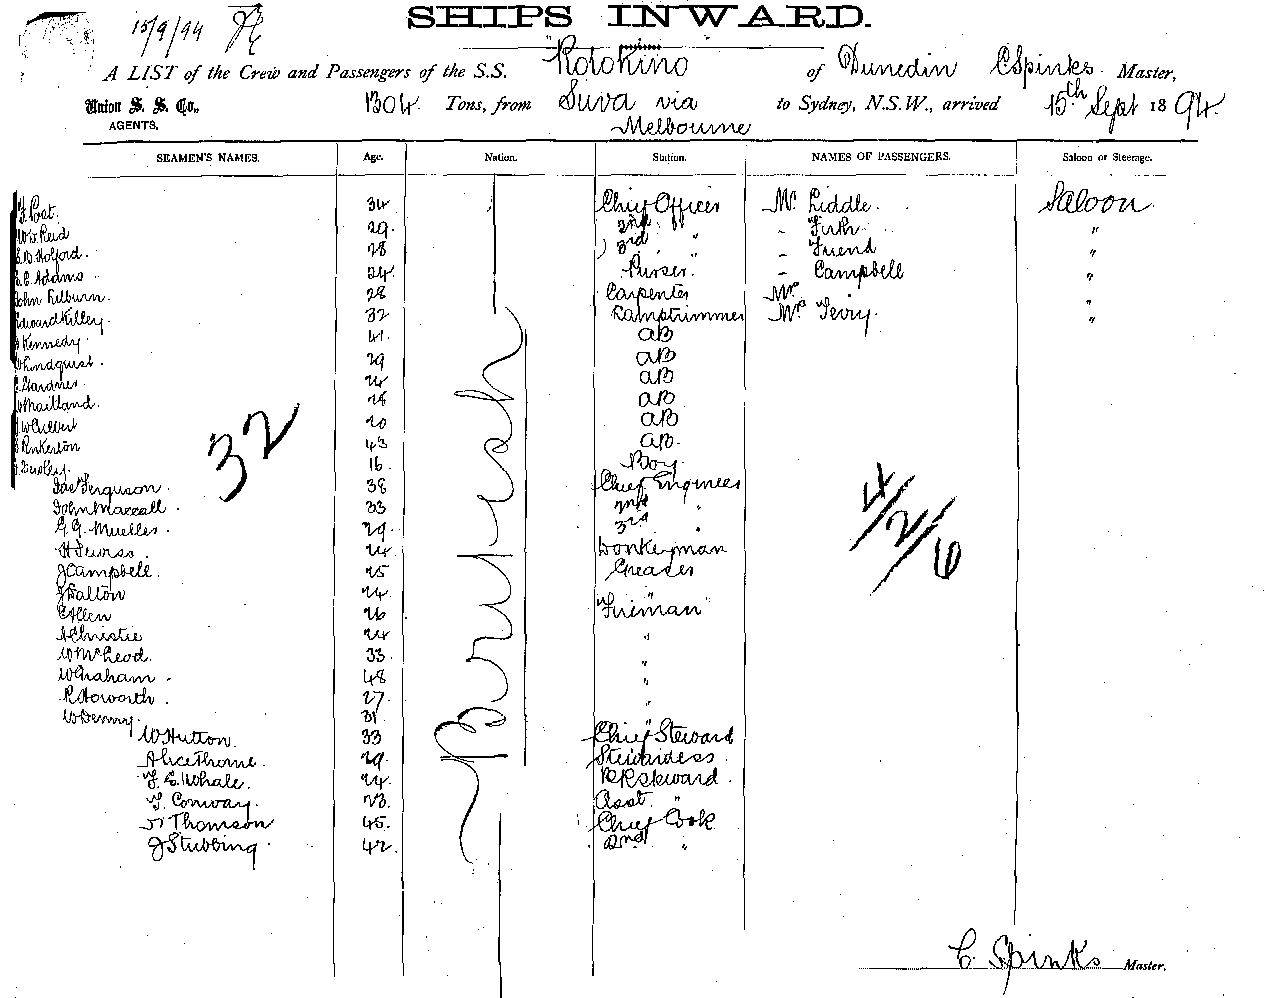 15/9/94
SHIPS INWARD.
A LIST of the Crew and Passengers of the S.S. "Rotokino of Dunedin C Spinks. Master,
Union S. S. Co., AGENTS, 1304. Tons, from Suva via Melbourne to Sydney, N.S.W., arrived 15th Sept 1894.
SEAMEN'S NAMES. Age. Nation. Station. NAMES OF PASSENGERS. Saloon or Steerage.
34 Chief Officer Mr. Liddle. Saloon
W. Reid 29 2nd " - "
Holford. 28 3rd " - Friend "
Adams 24 Purser. - Campbell "
John 28 Carpenter Mr "
Edward Killey 32 Lamptrimmer Mrs Terry. "
Kennedy 41. AB
Lindquist. 29 AB
Gardner 24 AB
Maitland 28 AB
W Gilbert 20 AB
Pinkerton 43 AB.
16 Boy.
Jas Ferguson 38 Chief Engineer
John Maccall 33 2nd "
G. G. Mueller 29 3rd "
24 Donkeyman
J Campbell 25 Greaser
J Dalton 24 "
C Allen 26 Fireman
A Christie 24 "
W McLeod. 33 "
W Graham 48 "
R Howorth 27 "
W Denny. 31 "
W Hutton 33 Chief Steward
Alice Thorne. 29 Stewardess
F. E. Whale. 24
F. Conway. 23 Asst. "
Thomson 45. Chief Cook
J Stubbing 42 2nd "
British
32
4/2/6
C. Spinks Master.